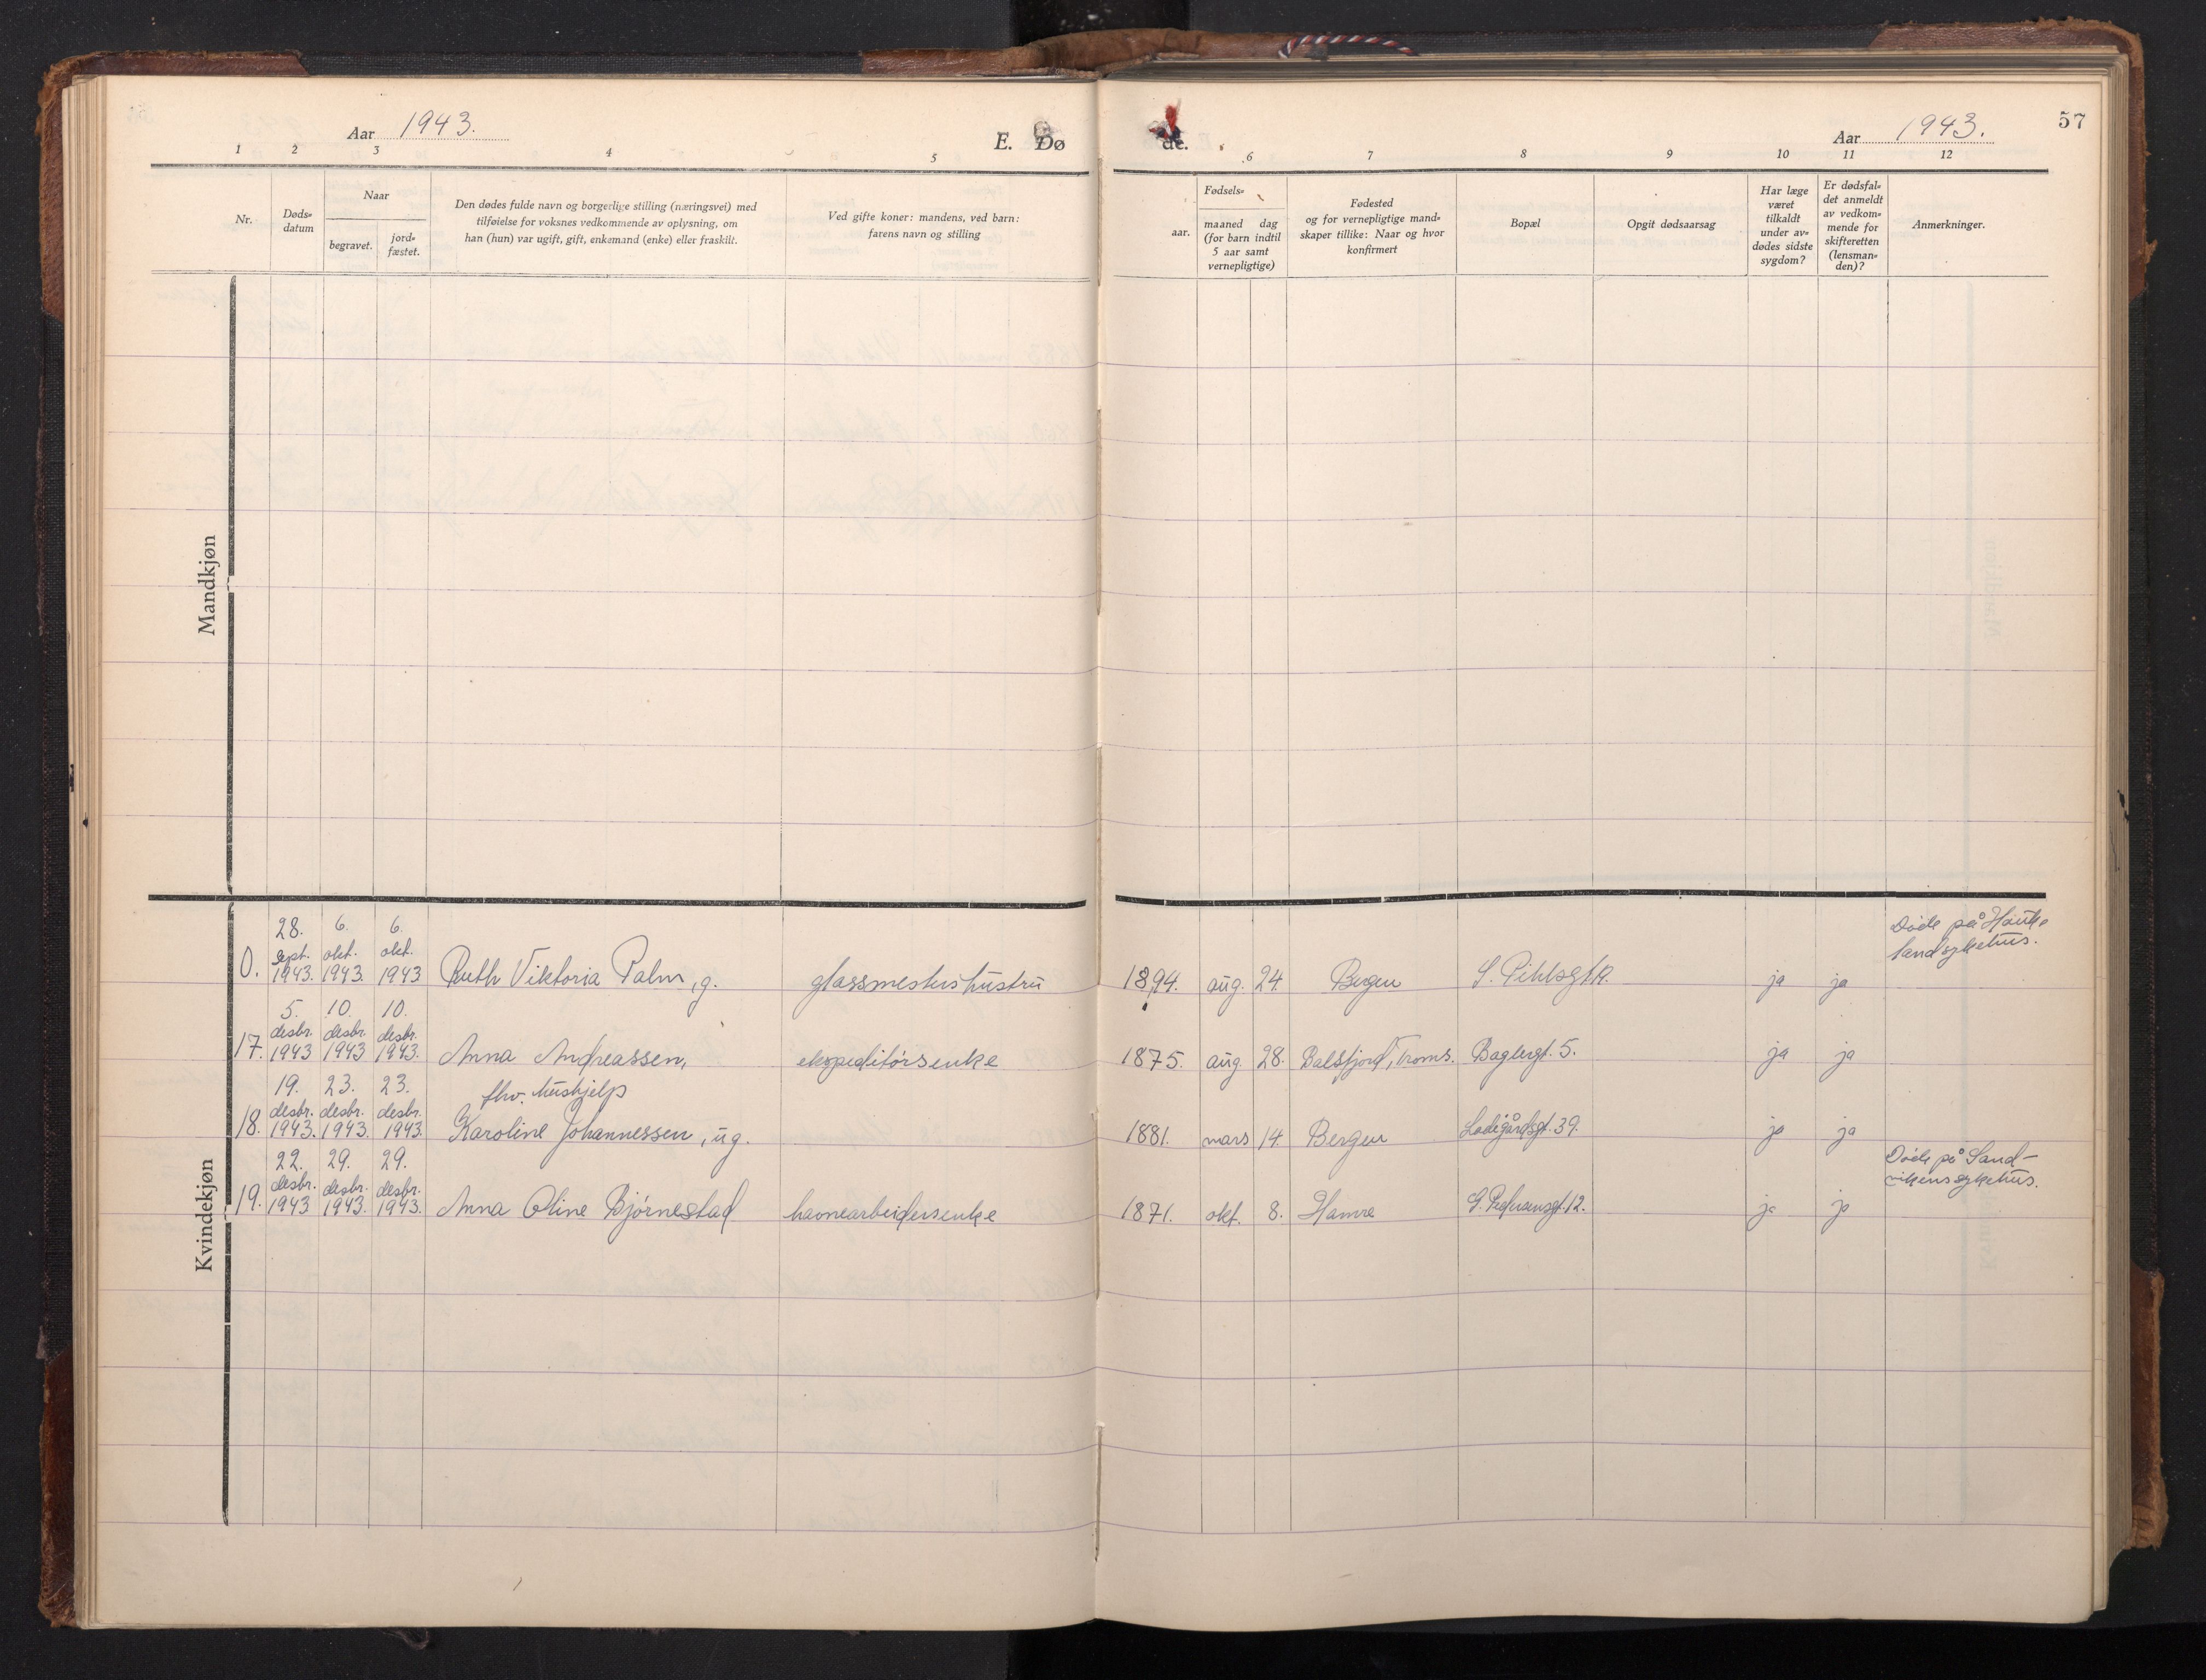 Aar 1943.
E. Døde.
Aar 1943.
57
1 2 3 4 5 6 7 8 9 10 11 12
Nr.
Døds-
datum
Naar
begravet.
jord-
fæstet.
Den dødes fulde navn og borgerlige stilling (næringsvei) med
tilføielse for voksnes vedkommende av oplysning, om
han (hun) var ugift, gift, enkemand (enke) eller fraskilt.
Ved gifte koner: mandens, ved barn:
farens navn og stilling
Fødsels-
aar.
maaned dag
(for barn indtil
5 aar samt
vernepligtige)
Fødested
og for vernepligtige mand-
skaper tillike: Naar og hvor
konfirmert
Bopæl
Opgit dødsaarsag
Har læge
været
tilkaldt
under av-
dødes sidste
sygdom?
Er dødsfal-
det anmeldt
av vedkom-
mende for
skifteretten
(lensman-
den)?
Anmerkninger.
Mandkjøn
Kvindekjøn
28. 6. 6.
sept. okt. okt.
0. 1943. 1943. 1943 Ruth Viktoria Palm, g. glassmesters hustru 1894. aug. 24. Bergen S. Pihlsgt. ja ja
Døde på Hauke-
landsykehus.
5. 10. 10.
desbr. desbr. desbr.
17. 1943 1943 1943. Anna Andreassen, ekspeditørsenke 1875. aug. 28. Balsfjord, Troms. Baglergt. 5. ja ja
19. 23. 23. fhv. hushjelp
desbr. desbr. desbr.
18. 1943. 1943. 1943. Karoline Johannessen, ug. 1881. mars 14. Bergen Ladegårdsgt. 39. ja ja
22. 29. 29.
desbr. desbr. desbr.
19. 1943 1943. 1943. Anna Oline Bjørnestad havnearbeidersenke 1871. okt. 8. Hamre Pedersensgt. 12. ja ja
Døde på Sand-
vikens sykehus.